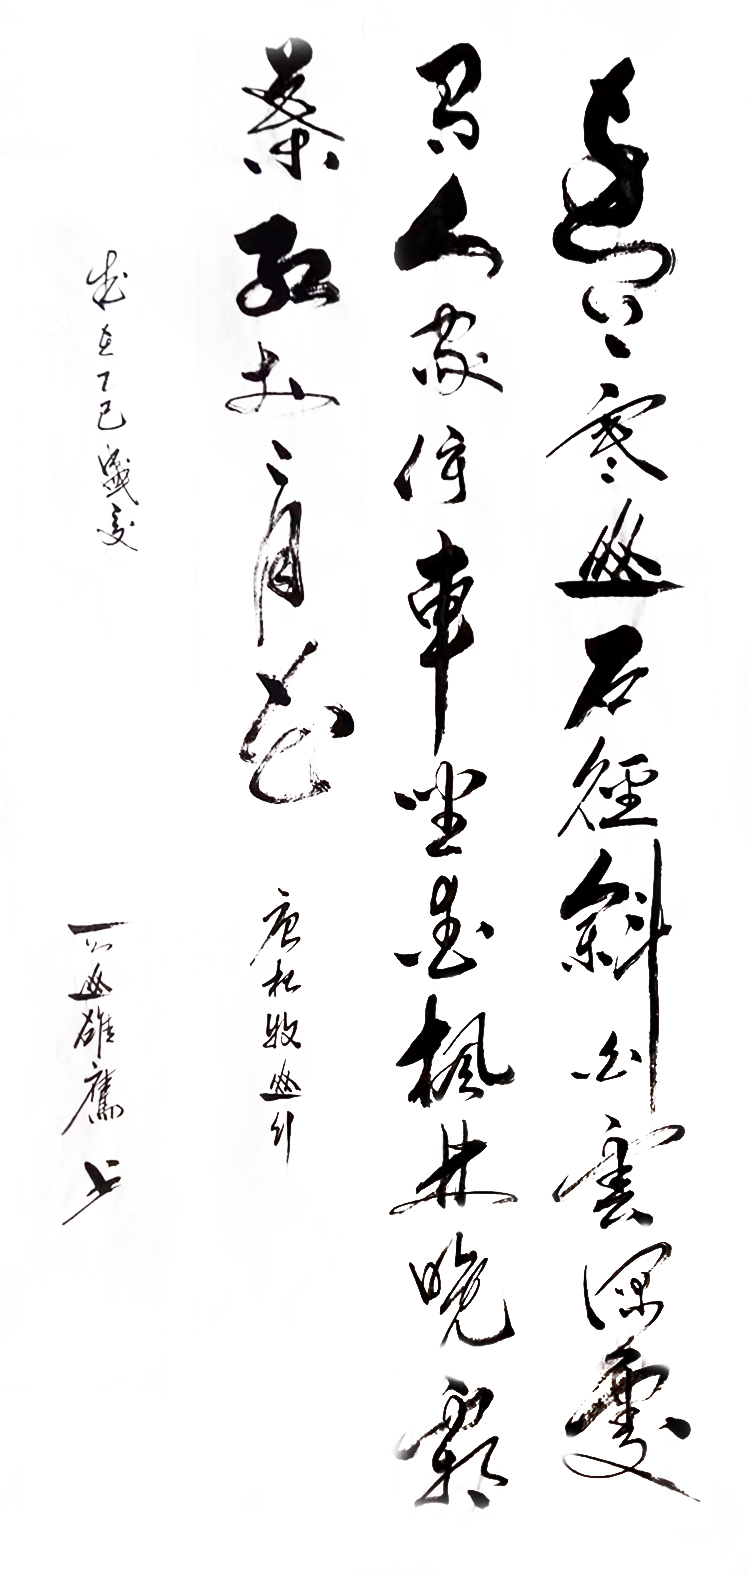 遠上寒山石徑斜白雲深處
有人家停車坐愛楓林晚霜
葉紅於二月花 唐杜牧山行
歲在乙巳盛夏 山雄鷹书